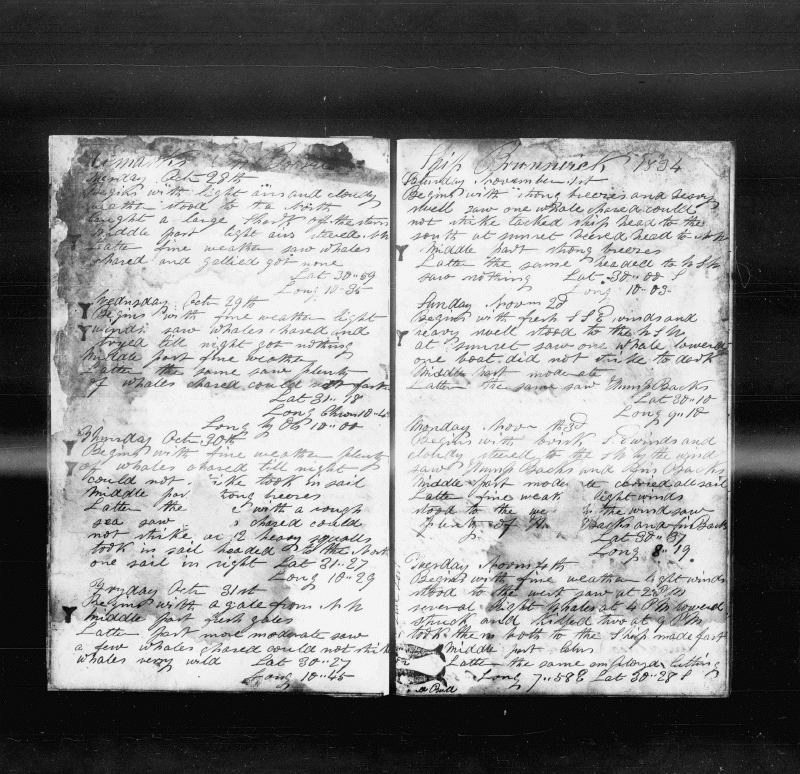 Remarks on Board
Tuesday Oct 28th
Begins with light airs and cloudy
weather stood to the North
caught a large shark off the stern
Middle part light airs steered NW
Latter fine weather saw whales
chased and gallied got none
Lat 30"59
Long 10"35
Wednsday Oct 29th
Begins with fine weather light
winds saw whales chased and
till night got nothing
Middle part fine weather
Latter the same saw plenty
of whales chased could not fast
Lat 31"18
Long Chron 10"4
Long by Ob 10"00
Thursday Octr 30th
Begins with fine weather plenty
of whales chased till night
could not ike took in sail
Middle par tong breezes
Latter the with a rough
sea saw chased could
not strike, or 2 heavy squalls
took in sail headed to the North
one sail in sight Lat 31"27
Long 10"29
Fryday Octr 31st
Begins with a gale from NW
Middle part fresh gales
Latter part more moderate saw
a few whales chased could not strike
whales very wild Lat 30"27
Long 10"45
Ship Brunswick 1834
Saturday November 1st
Begins with strong breezes and heavy
swell saw one whale chased could
not strike tacked ship head to the
south at sunset head to
Middle part strong breezes
Latter the same headed to WSW
saw nothing Lat 30"00 S
Long 10"03
Sunday Novem 2d
Begins with fresh SSE winds and
heavy swell stood to the WSW
at sunset saw one whale lowered
one boat did not strike to dark
Middle part moderate
Latter the same saw Hump Backs
Lat 30"10
Long 9"10
Monday Nov 3d
Begins with brisk SE winds and
cloudy steered to the SW by the wind
saw Hump Backs and Fin Backs
Middle part mode te carried all sail
Latter fine weat light winds
stood to the we the wind saw
plenty of H Backs and fin Backs
Lat 30"37
Long 8"19
Tuesday Novem 4th
Begins with fine weather light winds
stood to the west saw at 2 PM
several Right whales at 4 PM lowered
struck and killed two at 9 PM
took them both to the Ship made fast
Middle part calms
Latter the same employed cutting
Long 7"58 E Lat 30"28 S
Bull